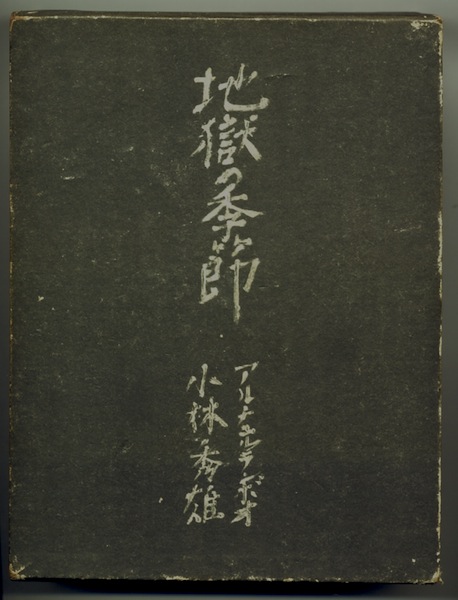 地獄の季節
アルチュルランボオ
小林秀雄